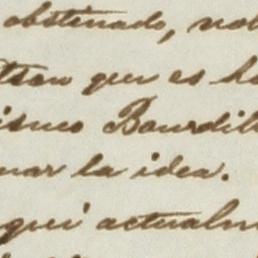 obstinado, vol
tson que es ha
ismo Bourdill
mar la idea.
qui actualm